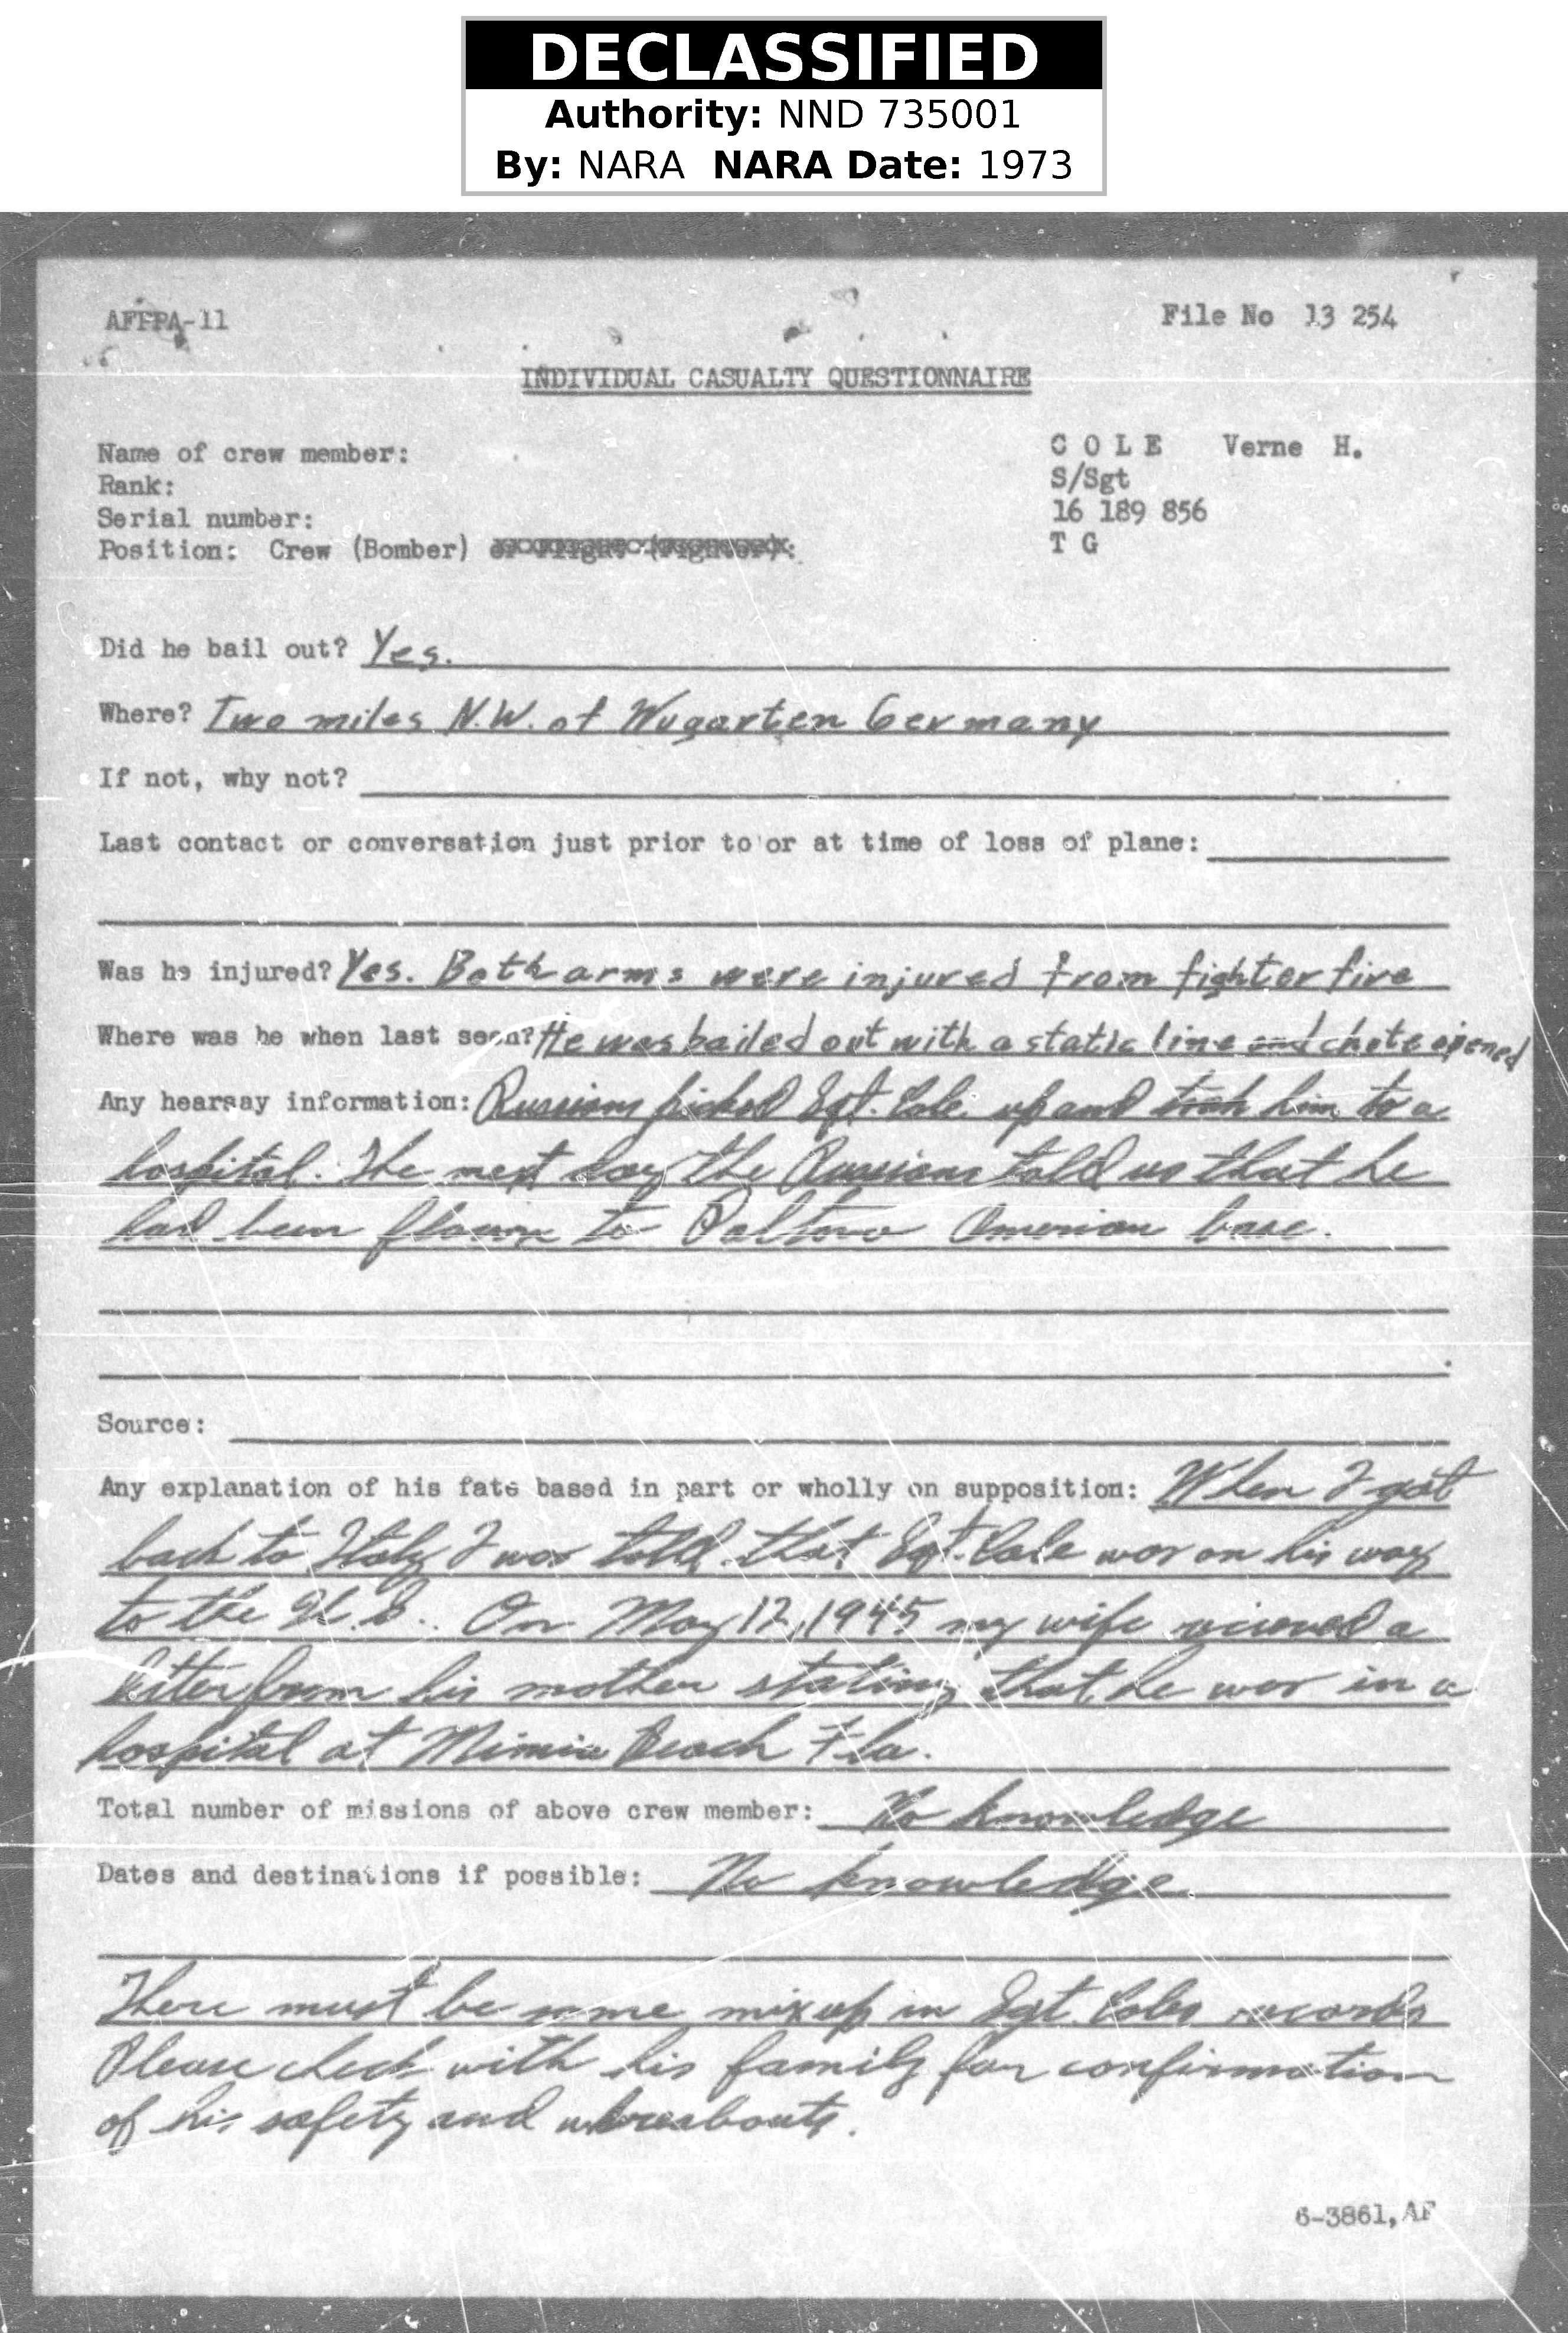 DECLASSIFIED
Authority: NND 735001
By: NARA NARA Date: 1973
AFPPA-11
File No 13 254
INDIVIDUAL CASUALTY QUESTIONNAIRE
Name of crew member: C O L E Verne H.
Rank: S/Sgt
Serial number: 16 189 856
Position: Crew (Bomber) or Flight (Fighter): T G
Did he bail out? Yes.
Where? Two miles N.W. of Wugarten Germany
If not, why not?
Last contact or conversation just prior to or at time of loss of plane:
Was he injured? Yes. Both arms were injured from fighter fire
Where was he when last seen? He was bailed out with a static line and chute opened
Any hearsay information: Russians picked Sgt. Cole up and took him to a
hospital. The next day the Russians told us that he
had been flown to Poltova American base.
Source:
Any explanation of his fate based in part or wholly on supposition: When I got
back to Italy I was told that Sgt. Cole was on his way
to the U.S. On May 12, 1945 my wife recieved a
letter from his mother stating that he was in a
hospital at Mimia Beach Fla.
Total number of missions of above crew member: No knowledge
Dates and destinations if possible: No knowledge
There must be some mixup in Sgt. Coles records
Please check with his family for confirmation
of his safety and whereabouts.
6-3861, AF